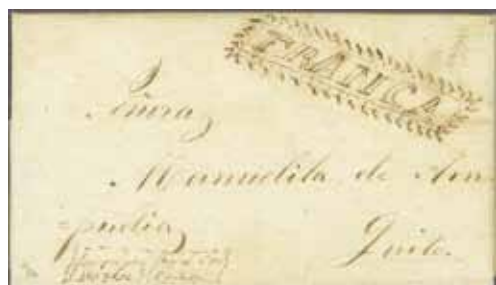 FRANCA
Señora
Manuelita de Am=
=pudia
Quito.